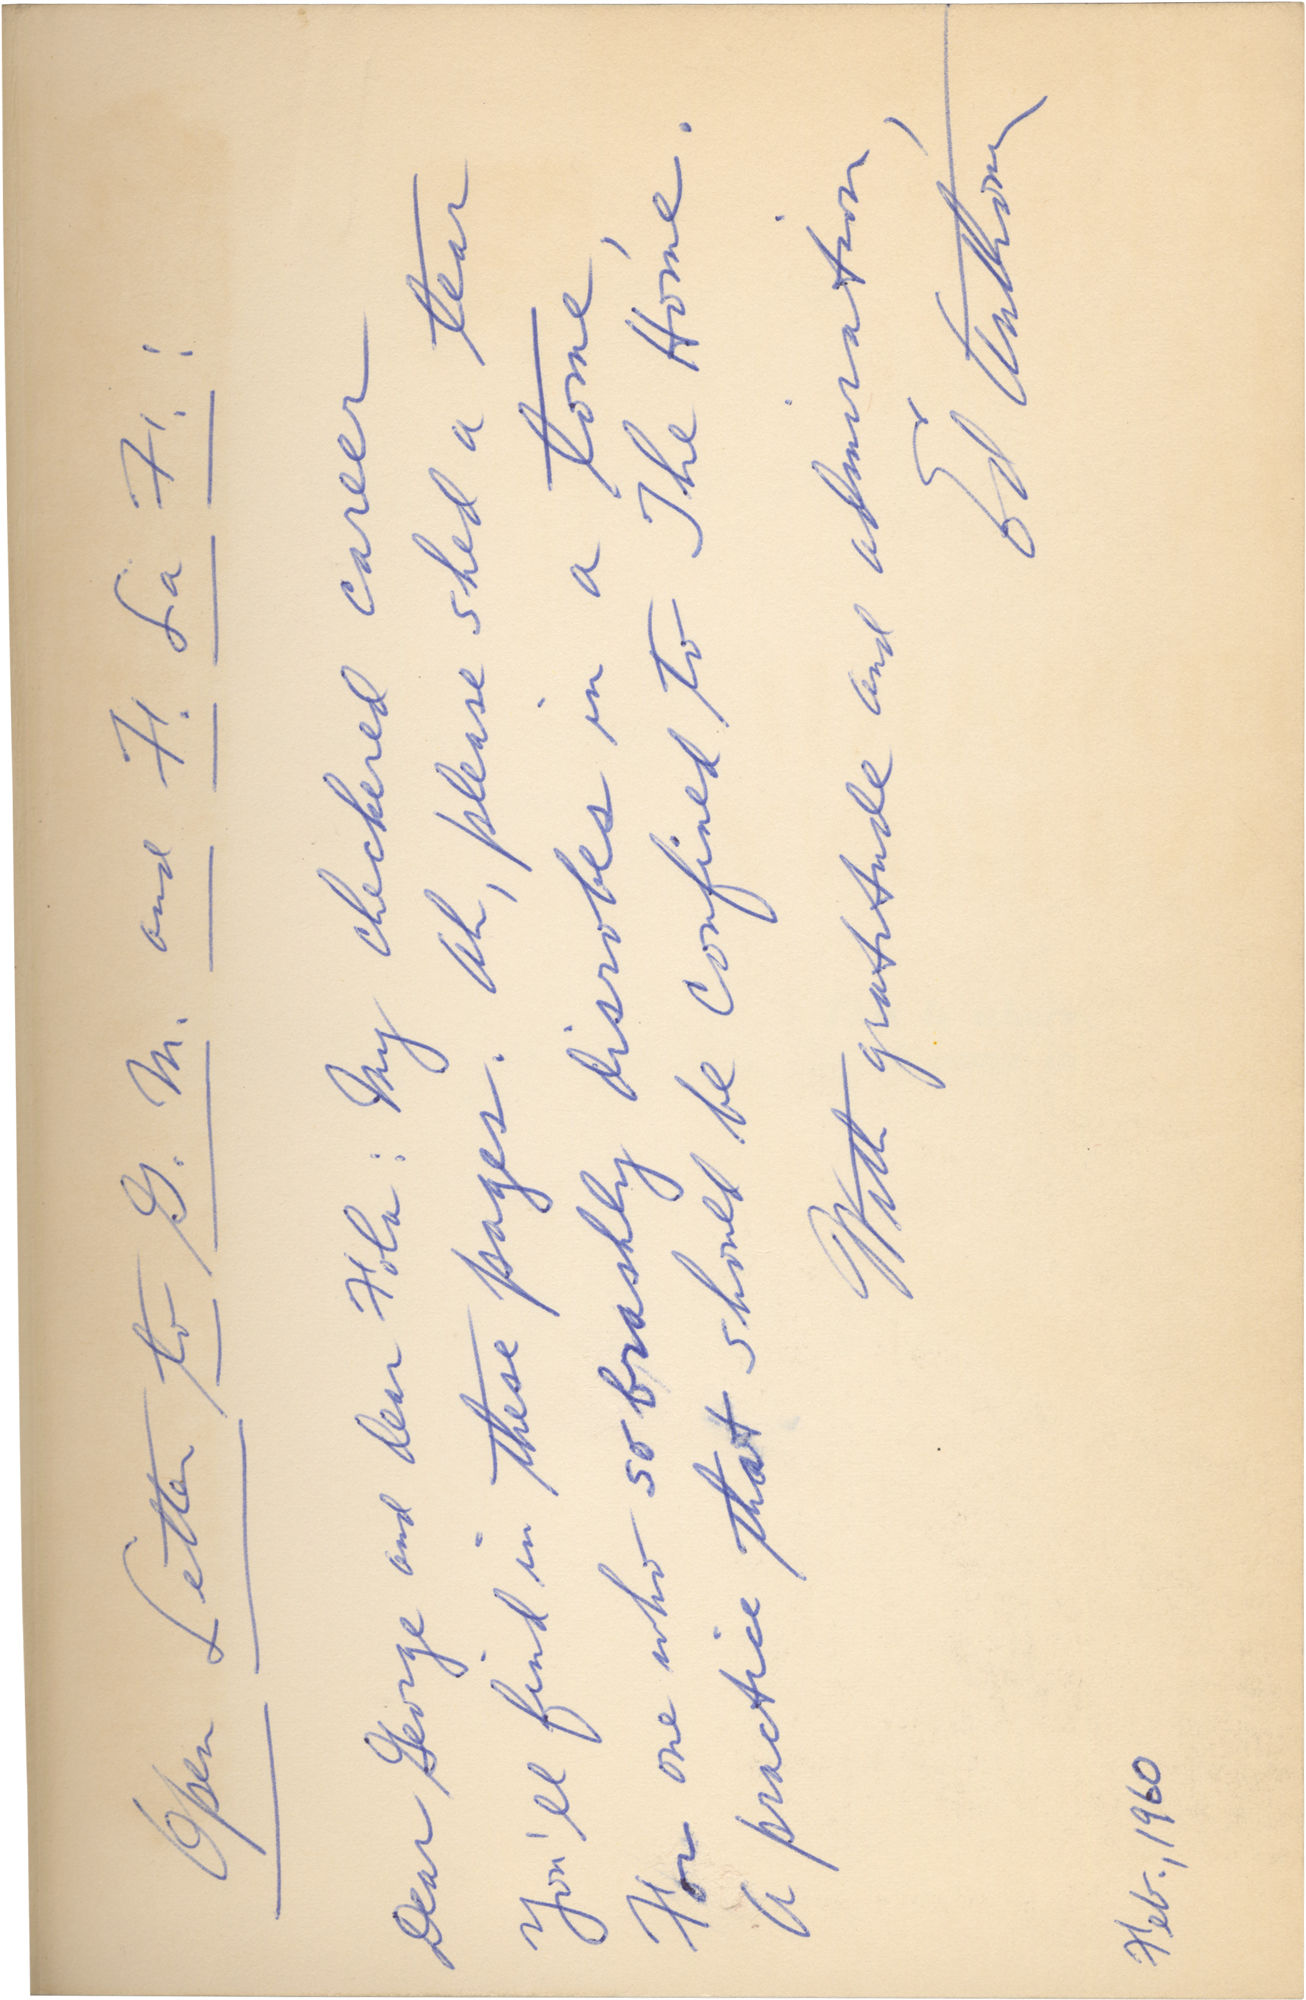 Open Letter to G. M. and F. La F.:
Dear George and dear Fola: My checkered career
You'll find in these pages. Ah, please shed a tear
For one who so brashly disrobes in a tome,
A practice that should be confined to The Home.
With gratitude and admiration,
Ed Anthony
Feb., 1960